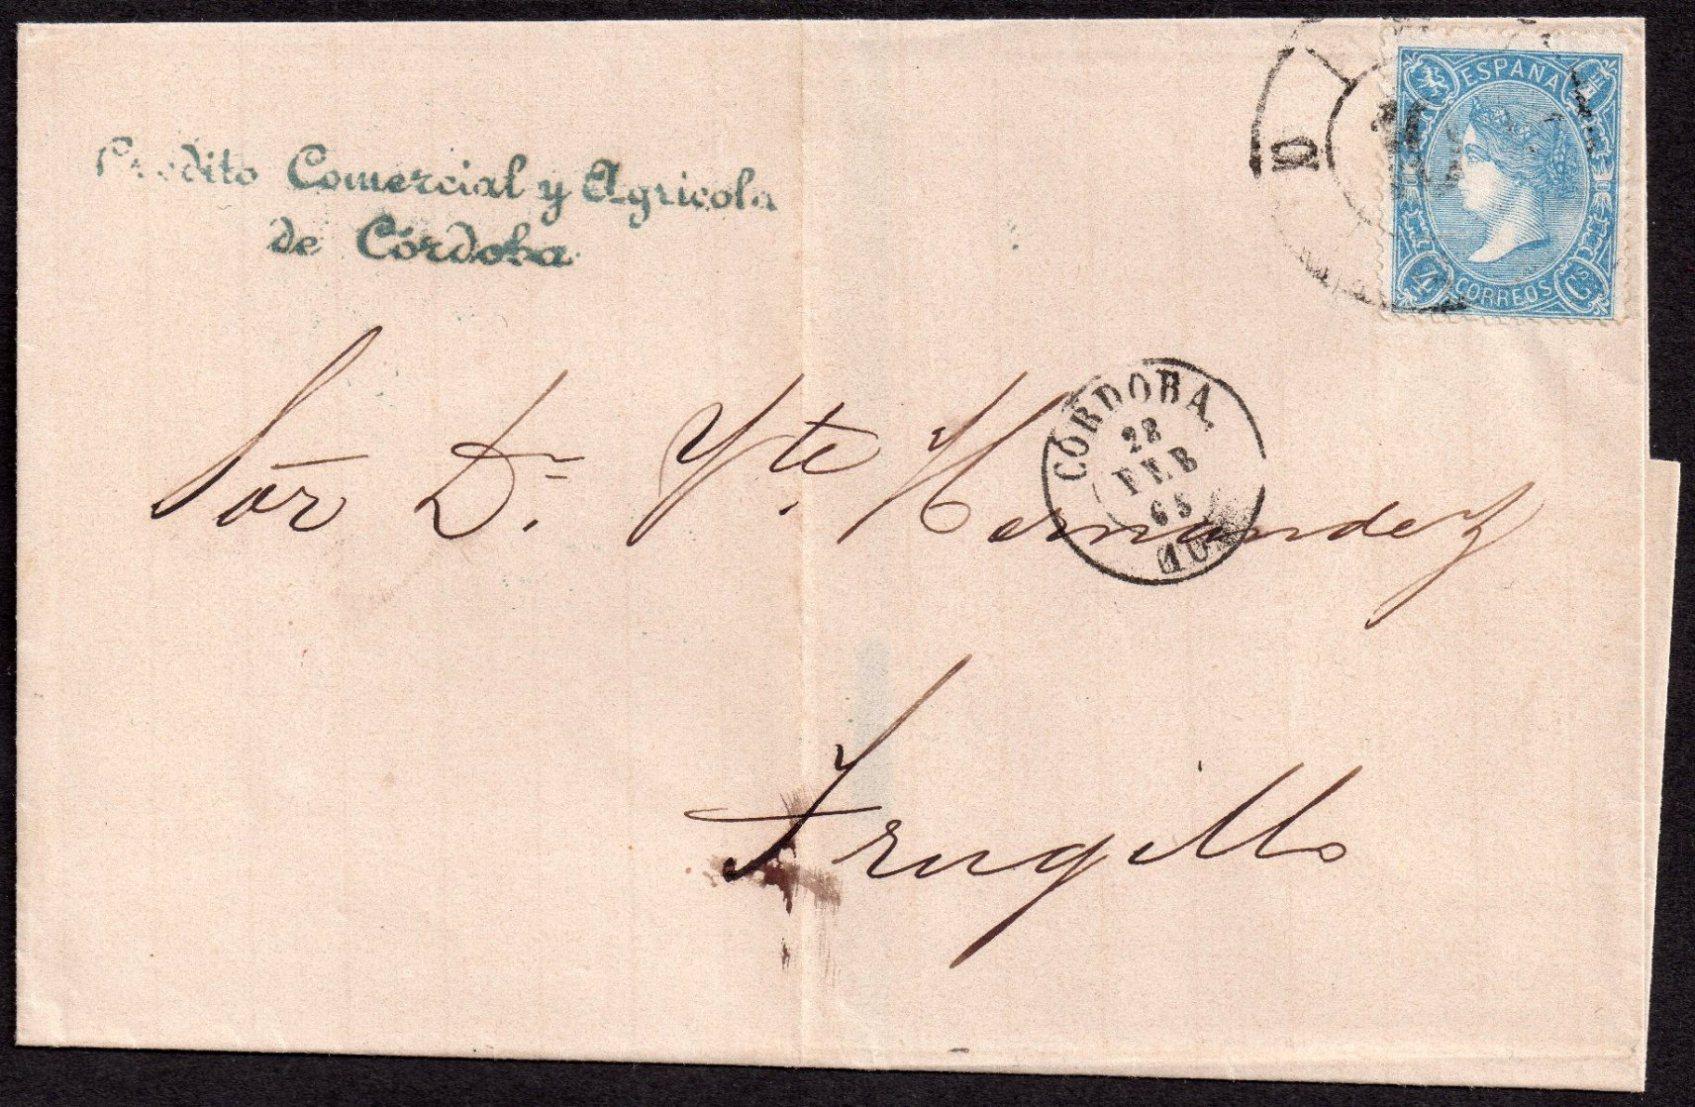 Credito Comercial y Agricola
de Córdoba
ESPAÑA
4 CORREOS Cs
CÓRDOBA
28
FEB
65
Sor Dn. Yte. Hernandez
Trugillo